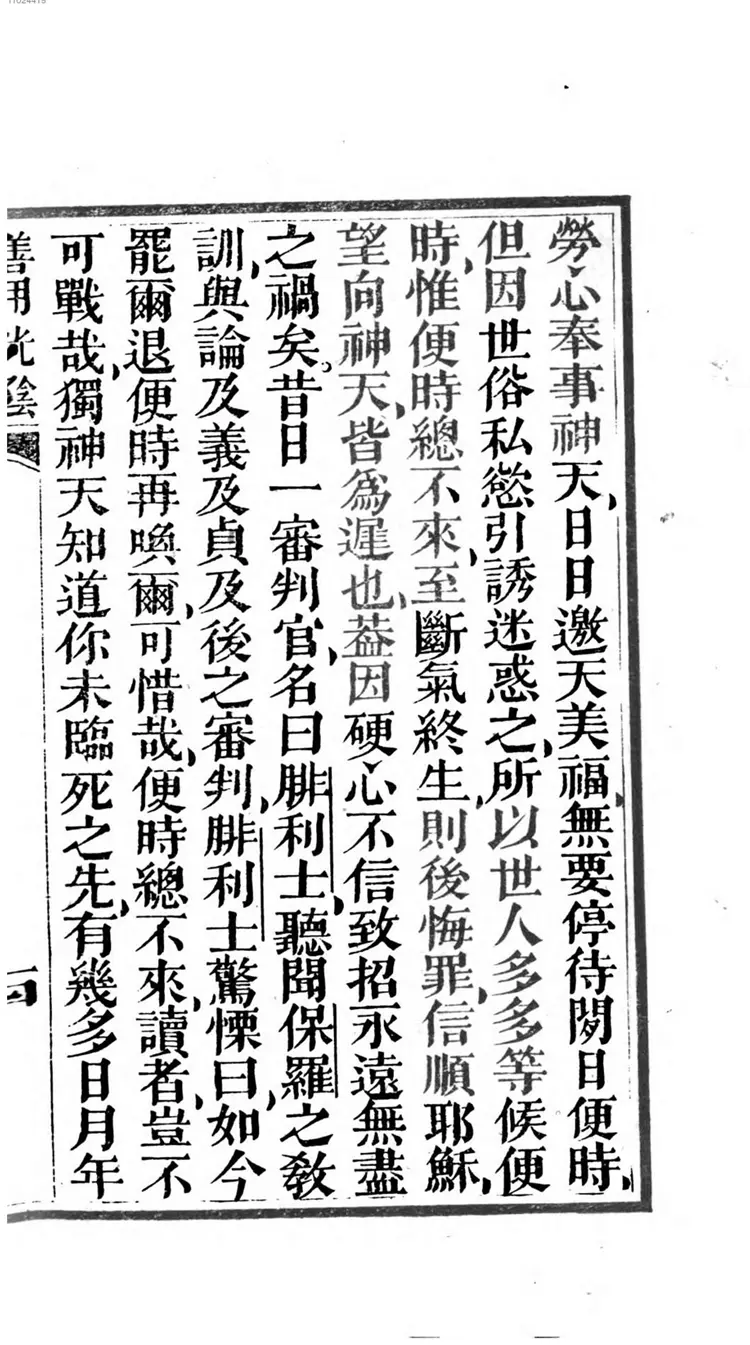 11024419
勞心奉事神天,日日邀天美福,無要停待閒日便時,
但因世俗私慾引誘迷惑之,所以世人多多等候便
時,惟便時總不來,至斷氣終生,則後悔罪,信順耶穌,
望向神天,皆為遲也,葢因硬心不信致招永遠無盡
之禍矣。昔日一審判官,名曰腓利士,聽聞保羅之敎
訓,與論及義及貞及後之審判,腓利士驚慄曰,如今
罷爾退便時再喚爾,可惜哉,便時總不來,讀者,豈不
可戰哉,獨神天知道你未臨死之先,有幾多日月年
善用光陰
四